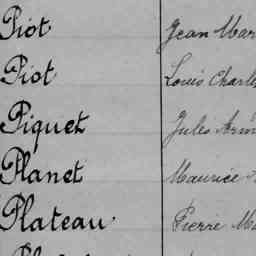 Piot Jean Mar
Piot Louis Charle
Piquet Jules Arm
Planet Maurice
Plateau Pierre Ma